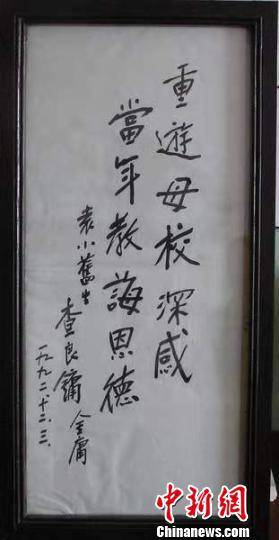 重遊母校深感
當年教誨恩德
袁小舊生
查良鏞 金庸
一九九二・十二・三、
中新網
Chinanews.com